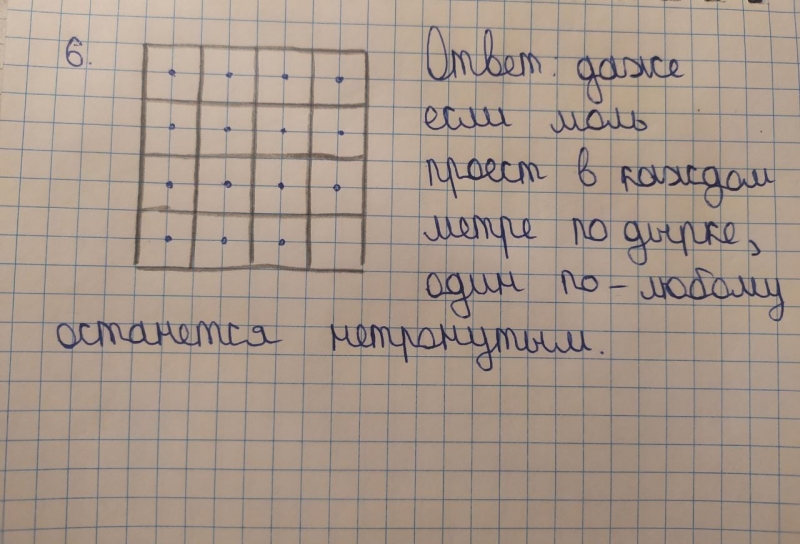 6.
Ответ: даже
если моль
проест в каждом
метре по дырке,
один по-любому
останется нетронутым.